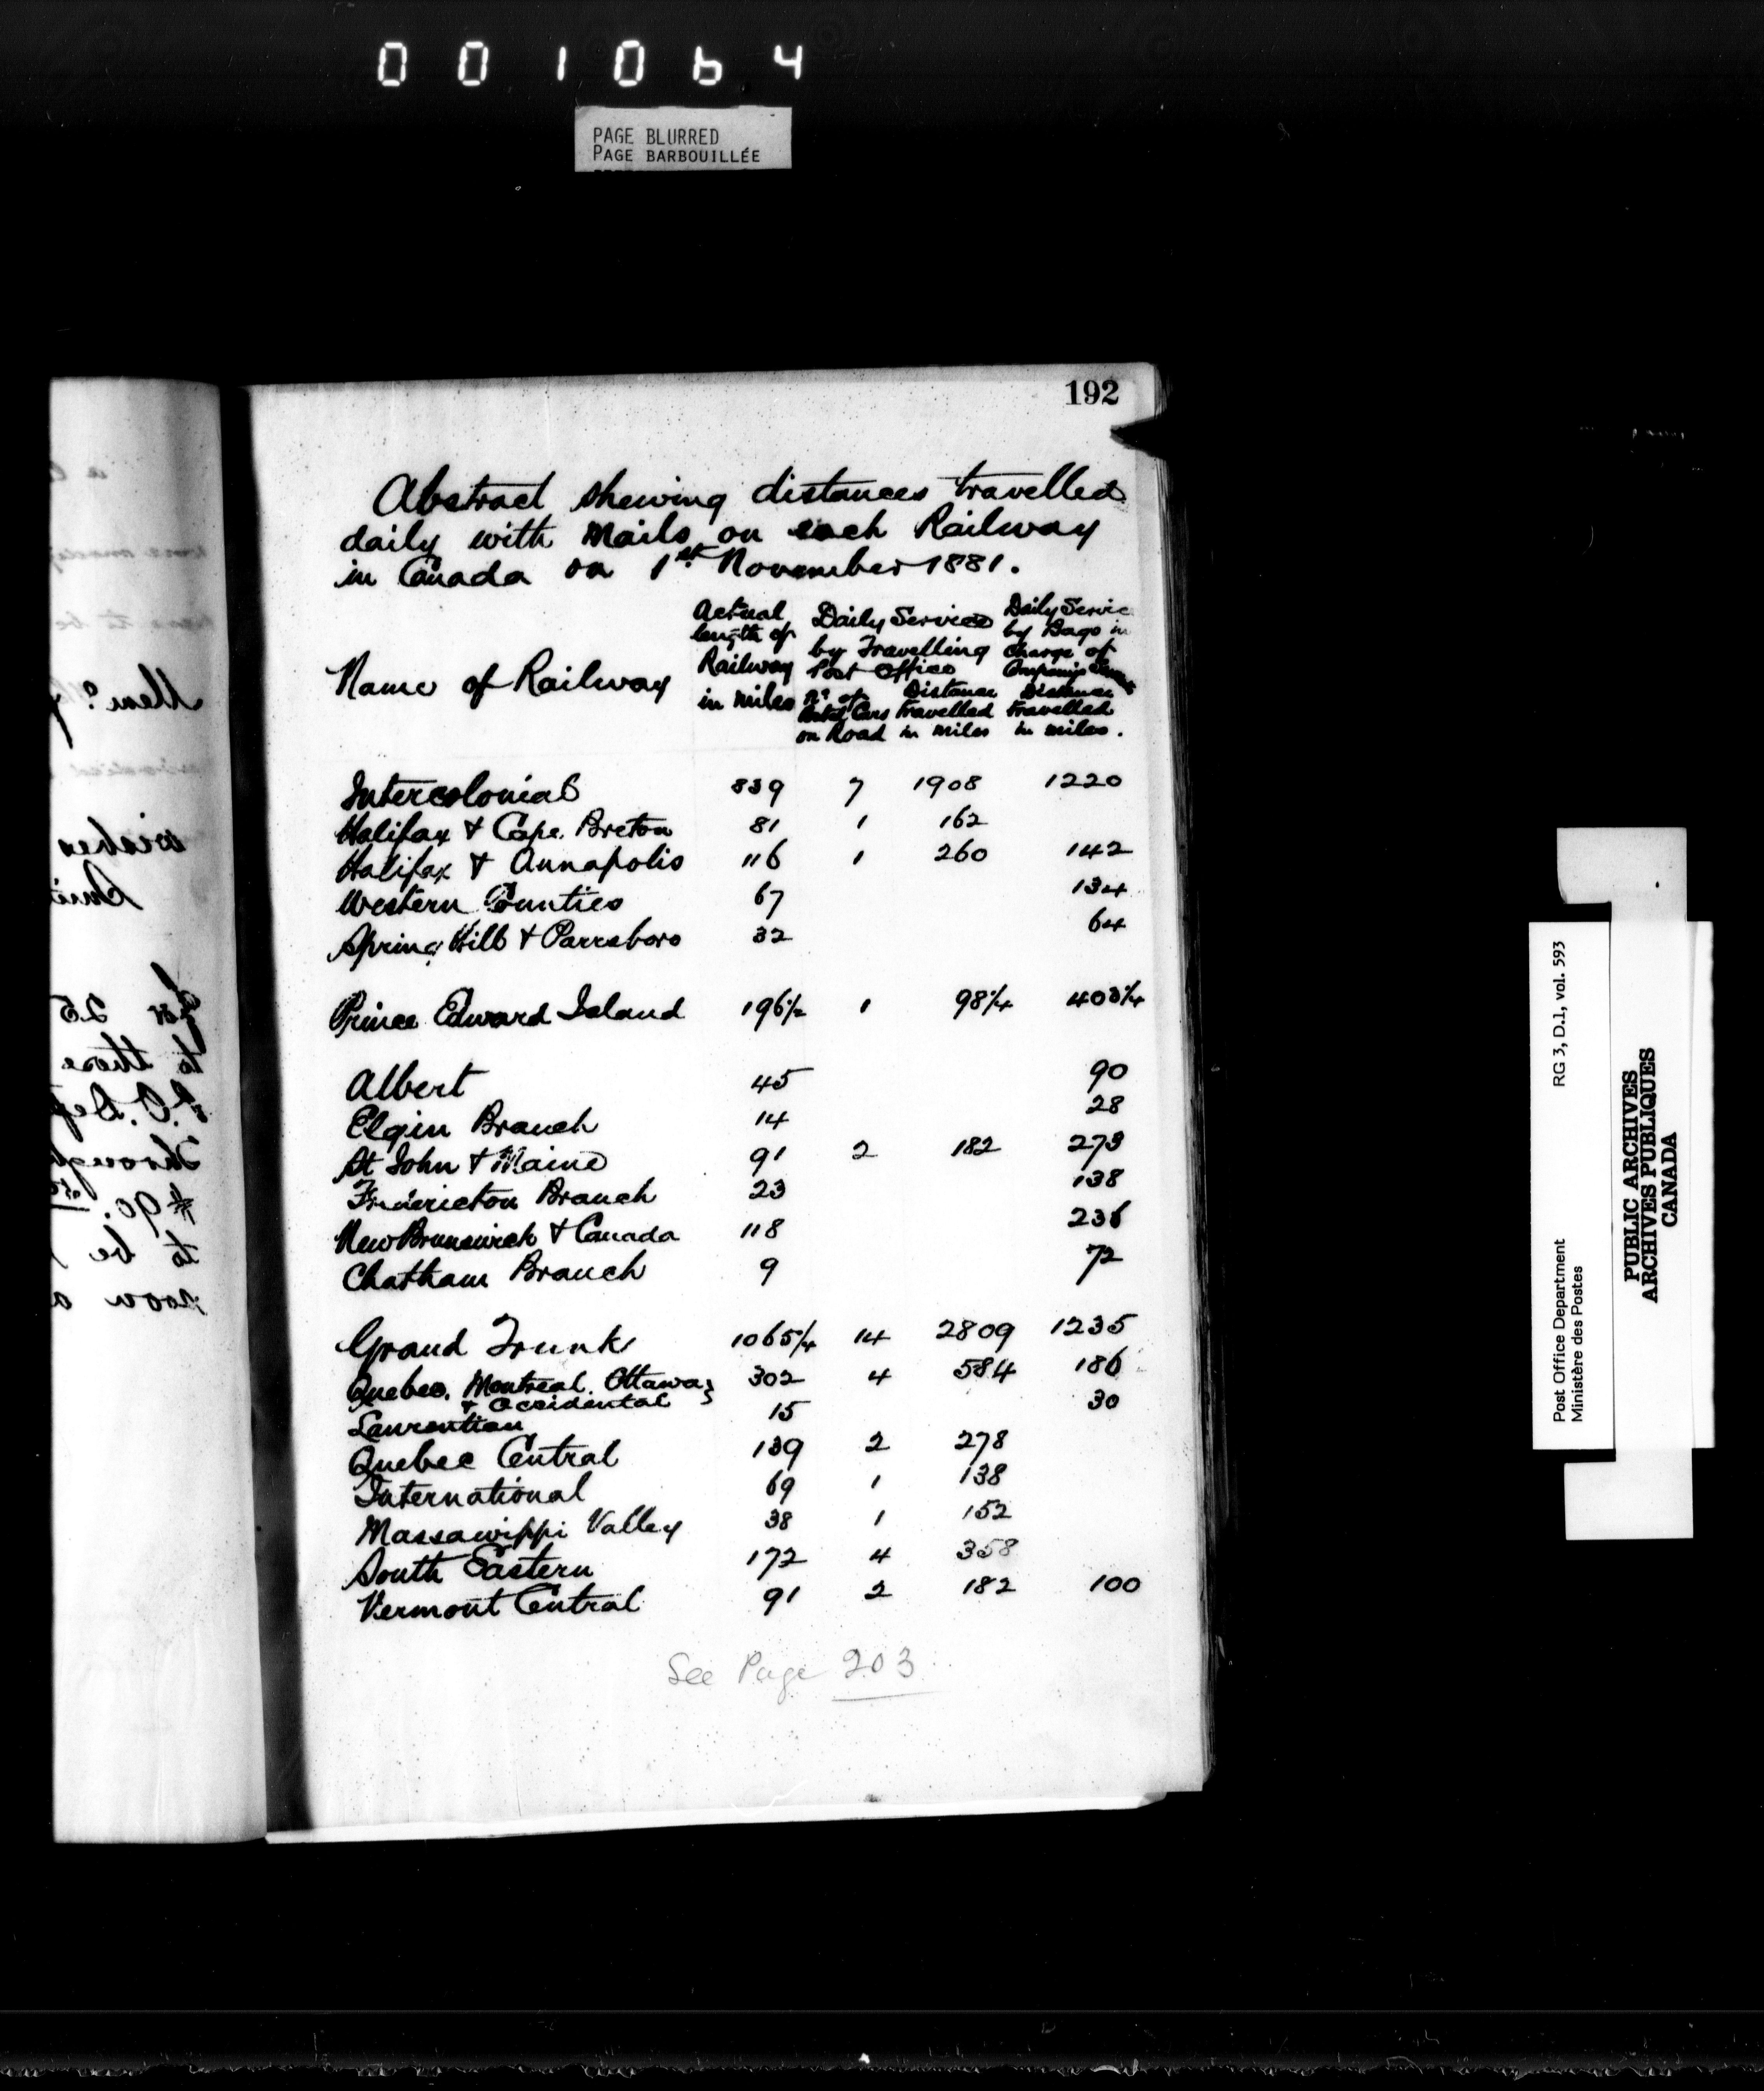 001064
PAGE BLURRED
PAGE BARBOUILLÉE
192
Abstract shewing distances travelled
daily with Mails on each Railway
in Canada on 1st November 1881.
Name of Railway
Actual
length of
Railway
in miles
Daily Service
by Travelling
Post Office
No. of
Postal Cars
on Road
Distance
travelled
in miles
Daily Servic
by Bags in
Charge of
Distance
travelled
in miles.
Intercolonial 839 7 1908 1220
Halifax & Cape Breton 81 1 162
Halifax & Annapolis 116 1 260 142
Western Counties 67 134
Spring Hill & Parrsboro 32 64
Prince Edward Island 196½ 1 98¼ 403¼
Albert 45 90
Elgin Branch 14 28
St John & Maine 91 2 182 273
Fredericton Branch 23 138
New Brunswick & Canada 118 236
Chatham Branch 9 72
Grand Trunk 1065¼ 14 2809 1235
Quebec, Montreal, Ottawa } 302 4 584 186
& Occidental
Laurentian 15 30
Quebec Central 139 2 278
International 69 1 138
Massawippi Valley 38 1 152
South Eastern 172 4 358
Vermont Central 91 2 182 100
See Page 203
Post Office Department RG 3, D.1, vol. 593
Ministère des Postes
PUBLIC ARCHIVES
ARCHIVES PUBLIQUES
CANADA